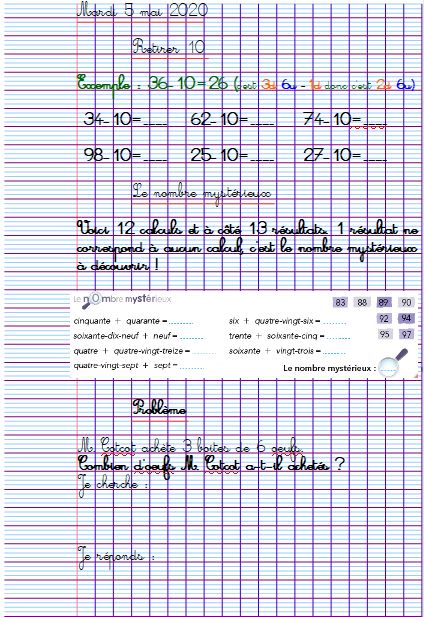 Mardi 5 mai 2020
Retirer 10
Exemple : 36-10=26 (c'est 3d 6u - 1d donc c'est 2d 6u)
34-10=____ 62-10=____ 74-10=____
98-10=____ 25-10=____ 27-10=____
Le nombre mystérieux
Voici 12 calculs et à côté 13 résultats. 1 résultat ne
correspond à aucun calcul, c'est le nombre mystérieux
à découvrir !
Le nOmbre mystérieux
83 88 89 90
cinquante + quarante = ........ six + quatre-vingt-six = ........ 92 94
soixante-dix-neuf + neuf = ........ trente + soixante-cinq = ........ 95 97
quatre + quatre-vingt-treize = ........ soixante + vingt-trois = ........
quatre-vingt-sept + sept = ........ Le nombre mystérieux : ........
Problème
M. Cotcot achète 3 boites de 6 oeufs.
Combien d'oeufs M. Cotcot a-t-il achetés ?
Je cherche :
Je réponds :